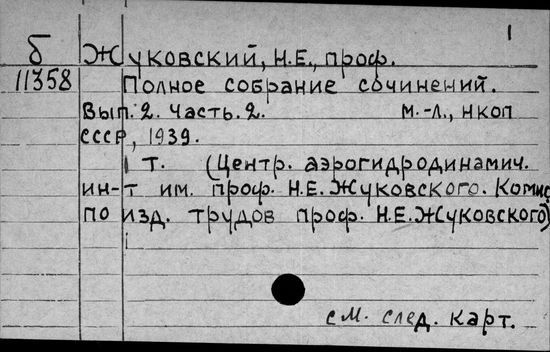 1
б Жуковский, Н.Е., проф.
11358 Полное собрание сочинений.
Вып. 2. Часть. 2. М.-Л., НКОП
СССР, 1939.
1 т. (Центр. аэрогидродинамич.
ин-т им. проф. Н.Е. Жуковского. Комис
по изд. трудов проф. Н.Е. Жуковского)
см. след. карт.